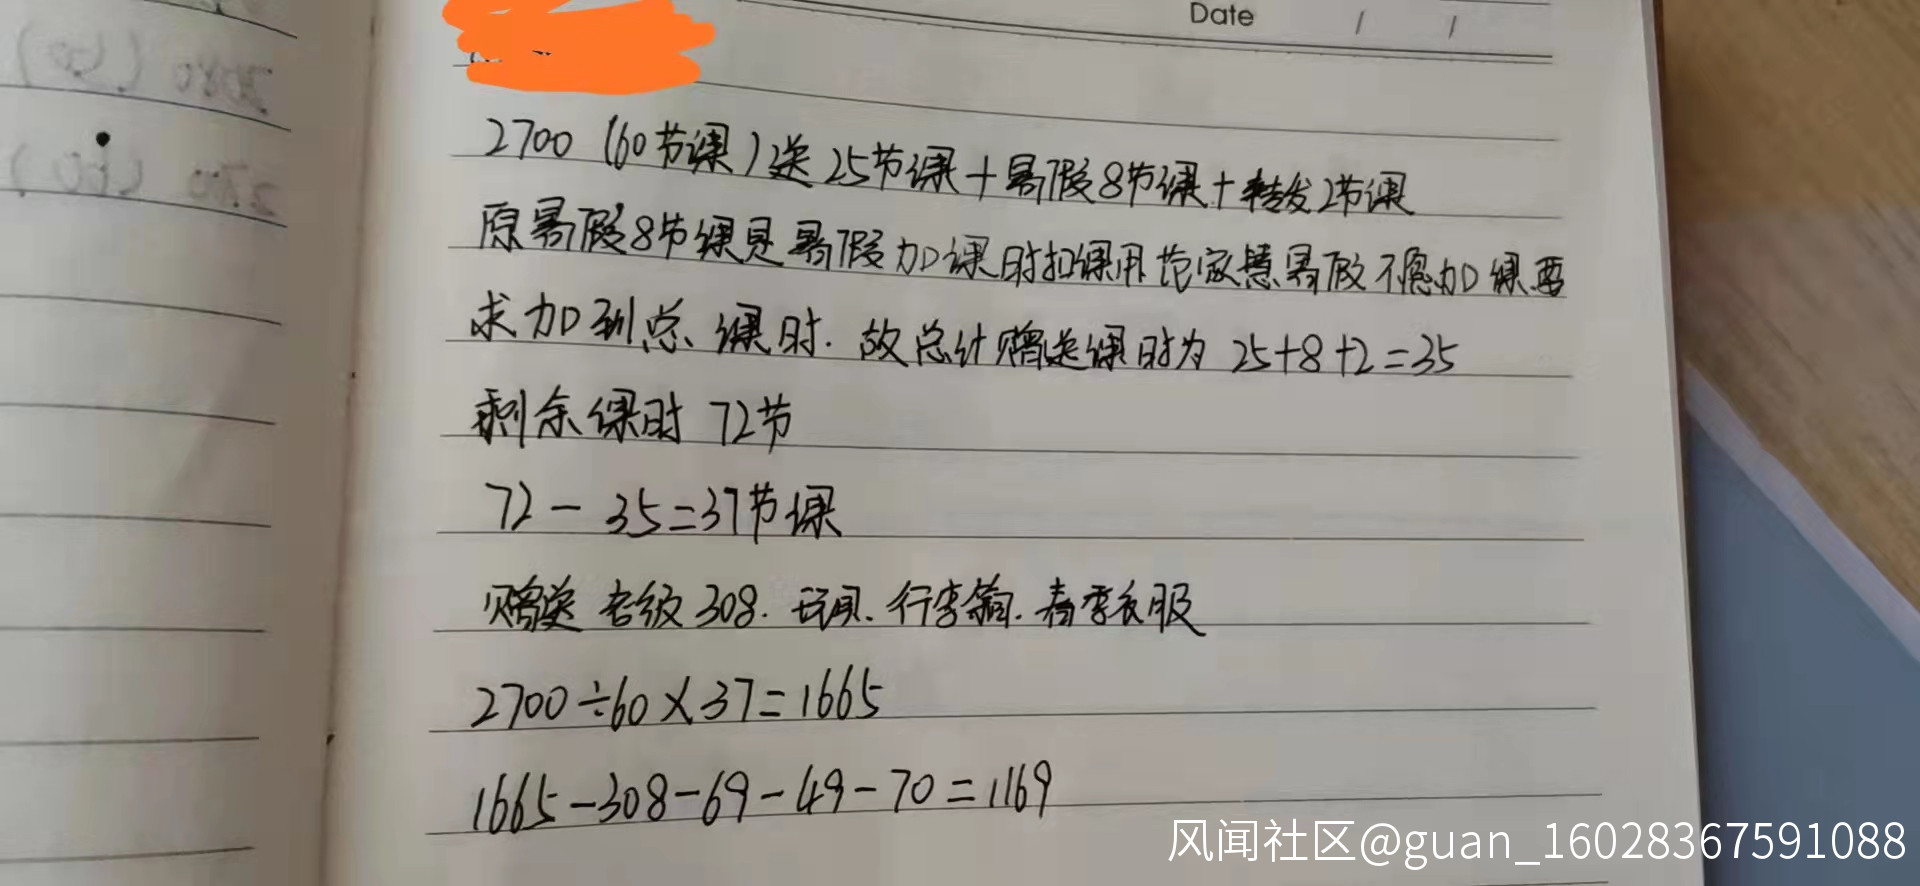 Date / /
2700 (60节课)送25节课+暑假8节课+转发2节课
原暑假8节课是暑假加课时扣课用 暑假不愿加课要
求加到总课时. 故总计赠送课时为 25+8+2=35
剩余课时 72节
72-35=37节课
赠送 考级308. 玩具. 行李箱. 春季衣服
2700÷60×37=1665
1665-308-69-49-70=1169
2080 (50)
2700 (60)
风闻社区@guan_16028367591088